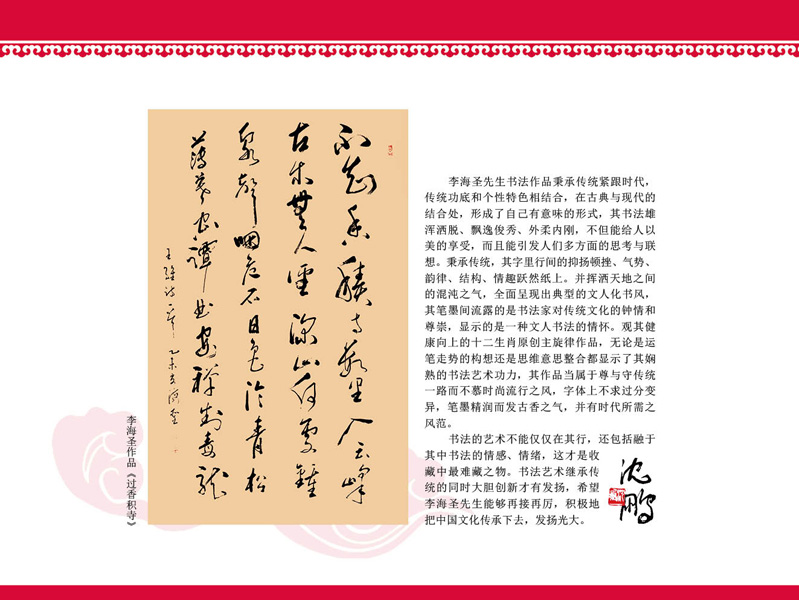 不知香積寺數里入云峰
古木無人徑深山何處鐘
泉聲咽危石日色冷青松
薄暮空潭曲安禪制毒龍
王維詩一首
李海圣作品《过香积寺》
李海圣先生书法作品秉承传统紧跟时代，
传统功底和个性特色相结合，在古典与现代的
结合处，形成了自己有意味的形式，其书法雄
浑洒脱、飘逸俊秀、外柔内刚，不但能给人以
美的享受，而且能引发人们多方面的思考与联
想。秉承传统，其字里行间的抑扬顿挫、气势、
韵律、结构、情趣跃然纸上。并挥洒天地之间
的混沌之气，全面呈现出典型的文人化书风，
其笔墨间流露的是书法家对传统文化的钟情和
尊崇，显示的是一种文人书法的情怀。观其健
康向上的十二生肖原创主旋律作品，无论是运
笔走势的构想还是思维意思整合都显示了其娴
熟的书法艺术功力，其作品当属于尊与守传统
一路而不慕时尚流行之风，字体上不求过分变
异，笔墨精润而发古香之气，并有时代所需之
风范。
书法的艺术不能仅仅在其行，还包括融于
其中书法的情感、情绪，这才是收
藏中最难藏之物。书法艺术继承传
统的同时大胆创新才有发扬，希望
李海圣先生能够再接再厉，积极地
把中国文化传承下去，发扬光大。
沈鹏